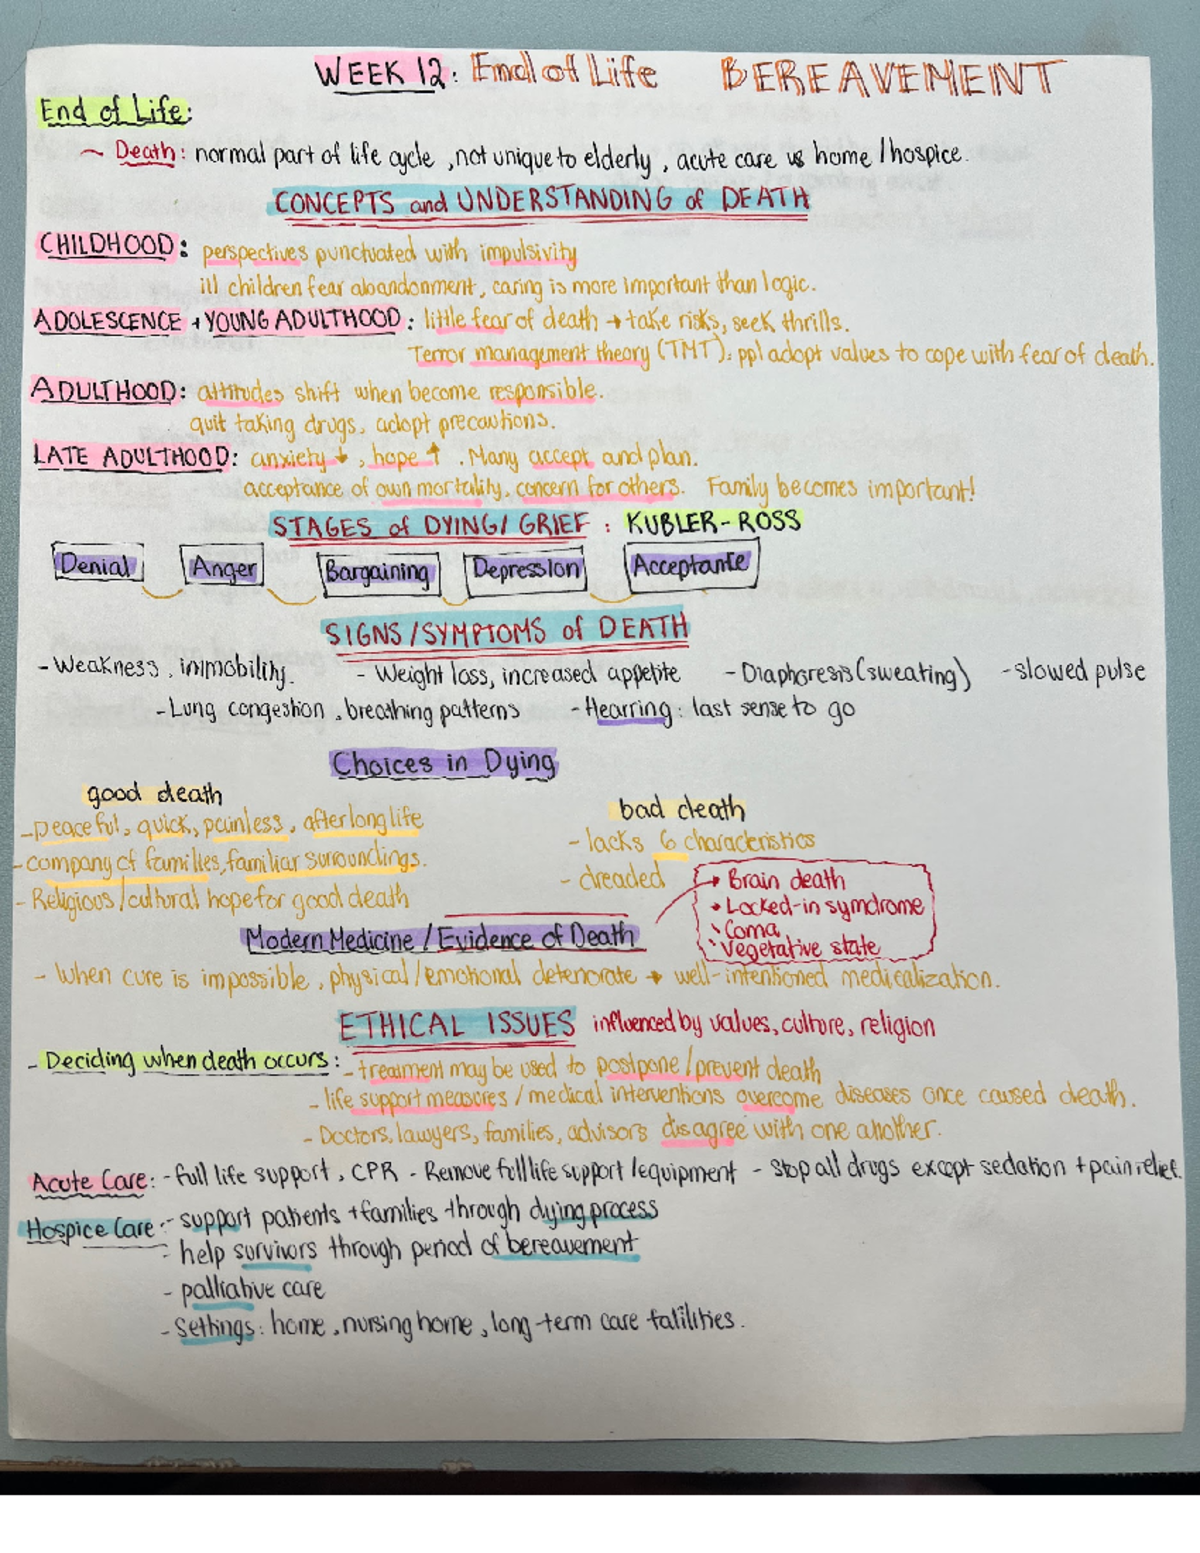 WEEK 12: End of Life BEREAVEMENT
End of Life:
~ Death: normal part of life cycle, not unique to elderly, acute care vs home / hospice.
CONCEPTS and UNDERSTANDING of DEATH
CHILDHOOD: perspectives punctuated with impulsivity
ill children fear abandonment, caring is more important than logic.
ADOLESCENCE + YOUNG ADULTHOOD: little fear of death → take risks, seek thrills.
Terror management theory (TMT): ppl adopt values to cope with fear of death.
ADULTHOOD: attitudes shift when become responsible.
quit taking drugs, adopt precautions.
LATE ADULTHOOD: anxiety ↓, hope ↑. Many accept and plan.
acceptance of own mortality, concern for others. Family becomes important!
STAGES of DYING/ GRIEF: KUBLER-ROSS
Denial Anger Bargaining Depression Acceptante
SIGNS/SYMPTOMS of DEATH
- Weakness, immobility. - Weight loss, increased appetite - Diaphoresis (sweating) - slowed pulse
- Lung congestion, breathing patterns - Hearring: last sense to go
Choices in Dying
good death
bad death
- peaceful, quick, painless, after long life
- lacks 6 characteristics
- company of families, familiar surroundings.
- dreaded
→ Brain death
- Religious / cultural hope for good death
• Locked-in symdrome
• Coma
Modern Medicine / Evidence of Death
• Vegetative state
- When cure is impossible, physical / emotional deteriorate → well-intentioned medicalization.
ETHICAL ISSUES influenced by values, culture, religion
- Deciding when death occurs: - treatment may be used to postpone / prevent death
- life support measures / medical interventions overcome diseases once caused death.
- Doctors, lawyers, families, advisors disagree with one another.
Acute Care: - full life support, CPR - Remove full life support / equipment - stop all drugs except sedation + pain relief.
Hospice Care: - support patients + families through dying process
- help survivors through period of bereavement
- palliative care
- Settings: home, nursing home, long-term care falilities.